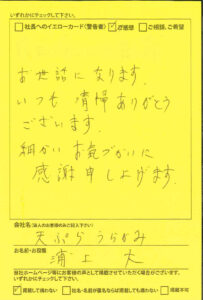 いずれかにチェックして下さい。
□社長へのイエローカード(警告書) ☑ご感想 □ご相談、ご希望
お世話になります。
いつも清掃ありがとう
ございます。
細かいお気づかいに
感謝申し上げます。
会社名(法人のお客様のみご記入下さい)
天ぷらうらかみ
お名前・お役職
浦上 大
当社ホームページ等にお客様の声として掲載させていただく場合がございます。
いずれかにチェックして下さい。
☑掲載して構わない □社名・名前が載らなければ掲載しても構わない □掲載不可